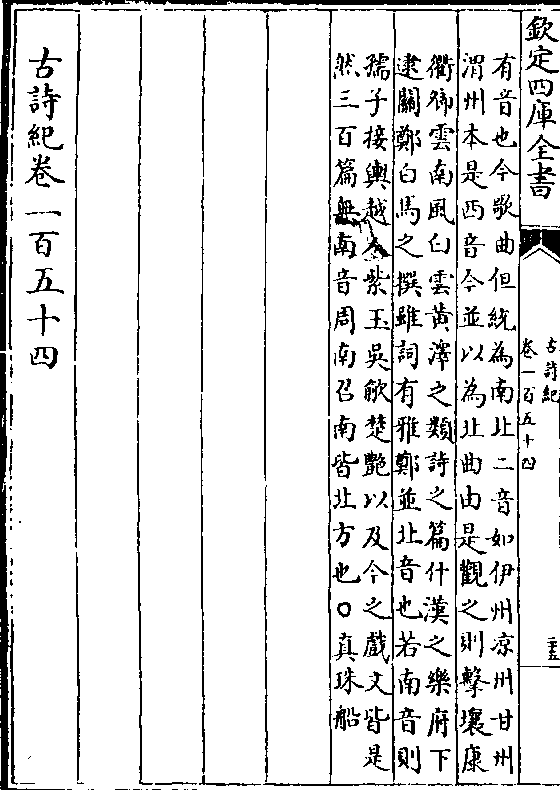 欽定四庫全書
古詩紀
卷一百五十四
有音也今歌曲但統為南北二音如伊州凉州甘州
渭州本是西音今並以為北曲由是觀之則擊壤康
衢卿雲南風白雲黄澤之類詩之篇什漢之樂府下
逮關鄭白馬之撰雖詞有雅鄭並北音也若南音則
孺子接輿越人紫玉吳歈楚艷以及今之戲文皆是
然三百篇無南音周南召南皆北方也○真珠船
古詩紀卷一百五十四